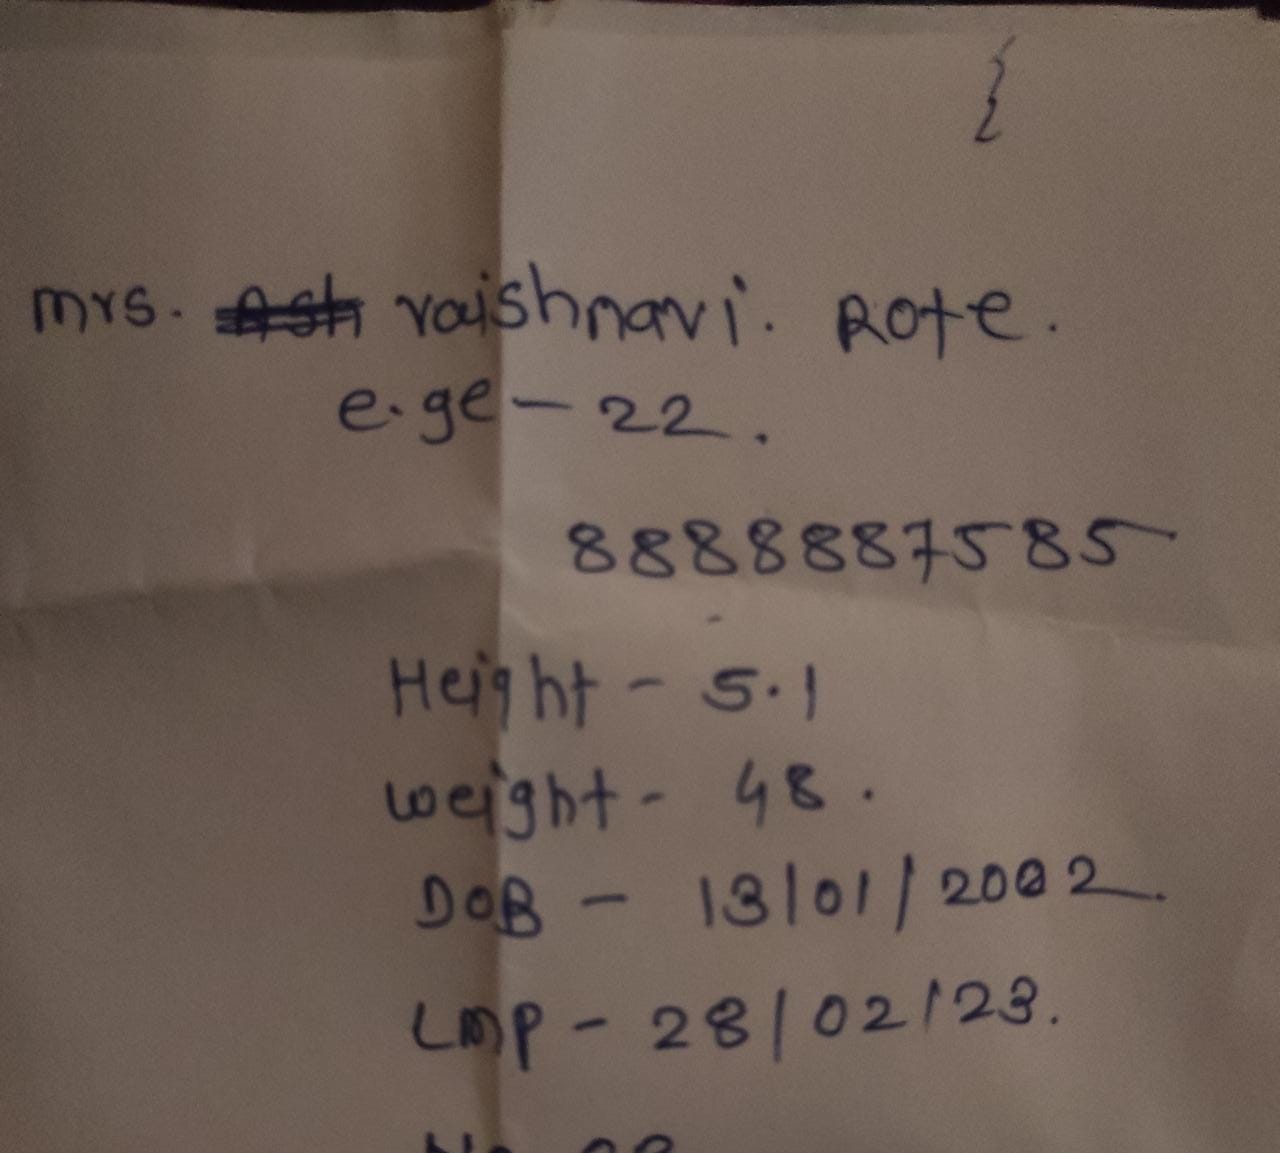 mrs. vaishnavi. Rote.
e.ge - 22.
8888887585
Height - 5.1
weight - 48.
DOB - 13/01/2002.
LMP - 28/02/23.